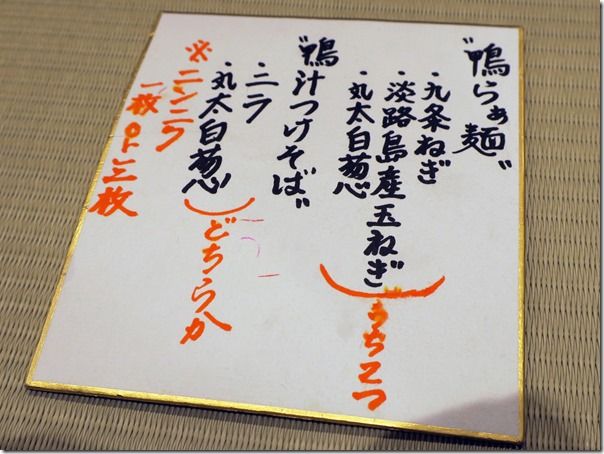 "鴨らぁ麺"
・九条ねぎ
・淡路島産玉ねぎ
・丸太白葱
うち2つ
"鴨汁つけそば"
・ニラ
・丸太白葱
どちらか
※ニンニク
一枚or二枚